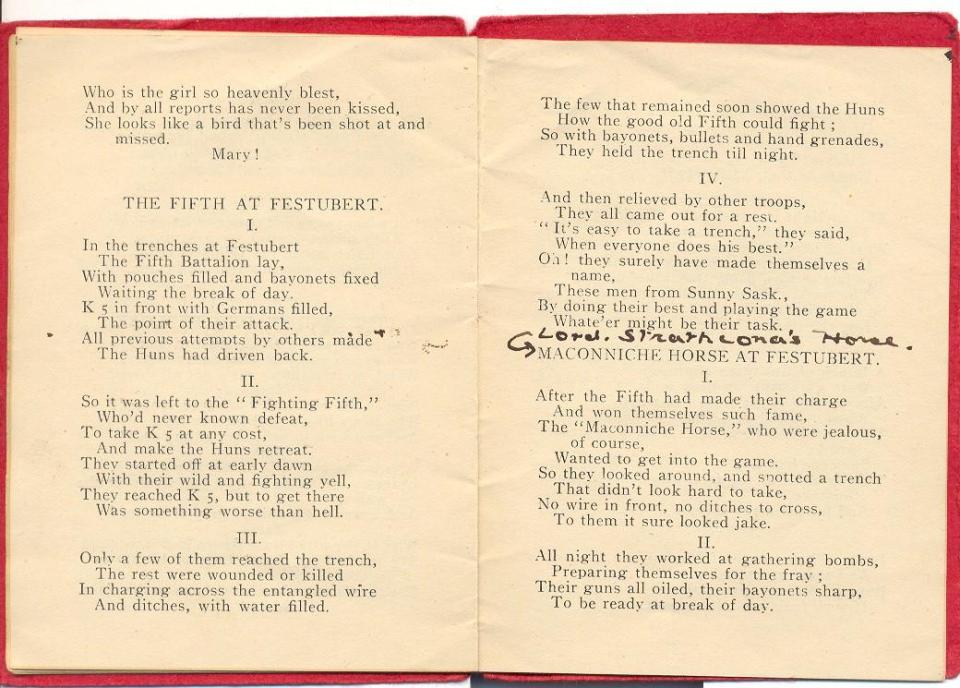 Who is the girl so heavenly blest,
And by all reports has never been kissed,
She looks like a bird that's been shot at and
missed.
Mary!
THE FIFTH AT FESTUBERT.
I.
In the trenches at Festubert
The Fifth Battalion lay,
With pouches filled and bayonets fixed
Waiting the break of day.
K 5 in front with Germans filled,
The point of their attack.
All previous attempts by others made
The Huns had driven back.
II.
So it was left to the "Fighting Fifth,"
Who'd never known defeat,
To take K 5 at any cost,
And make the Huns retreat.
They started off at early dawn
With their wild and fighting yell,
They reached K 5, but to get there
Was something worse than hell.
III.
Only a few of them reached the trench,
The rest were wounded or killed
In charging across the entangled wire
And ditches, with water filled.
The few that remained soon showed the Huns
How the good old Fifth could fight;
So with bayonets, bullets and hand grenades,
They held the trench till night.
IV.
And then relieved by other troops,
They all came out for a rest.
"It's easy to take a trench," they said,
When everyone does his best."
Oh! they surely have made themselves a
name,
These men from Sunny Sask.,
By doing their best and playing the game
Whate'er might be their task.
Lord. Strathcona's Horse.
MACONNICHE HORSE AT FESTUBERT.
I.
After the Fifth had made their charge
And won themselves such fame,
The "Maconniche Horse," who were jealous,
of course,
Wanted to get into the game.
So they looked around, and spotted a trench
That didn't look hard to take,
No wire in front, no ditches to cross,
To them it sure looked jake.
II.
All night they worked at gathering bombs,
Preparing themselves for the fray;
Their guns all oiled, their bayonets sharp,
To be ready at break of day.